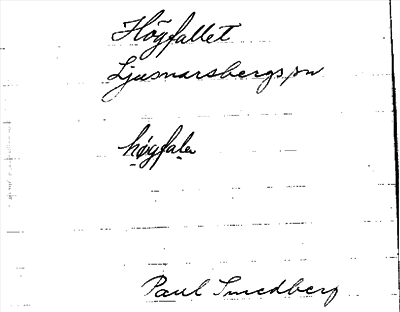 Högfallet
Ljusnarsbergs sn
högfale
Paul Smedberg